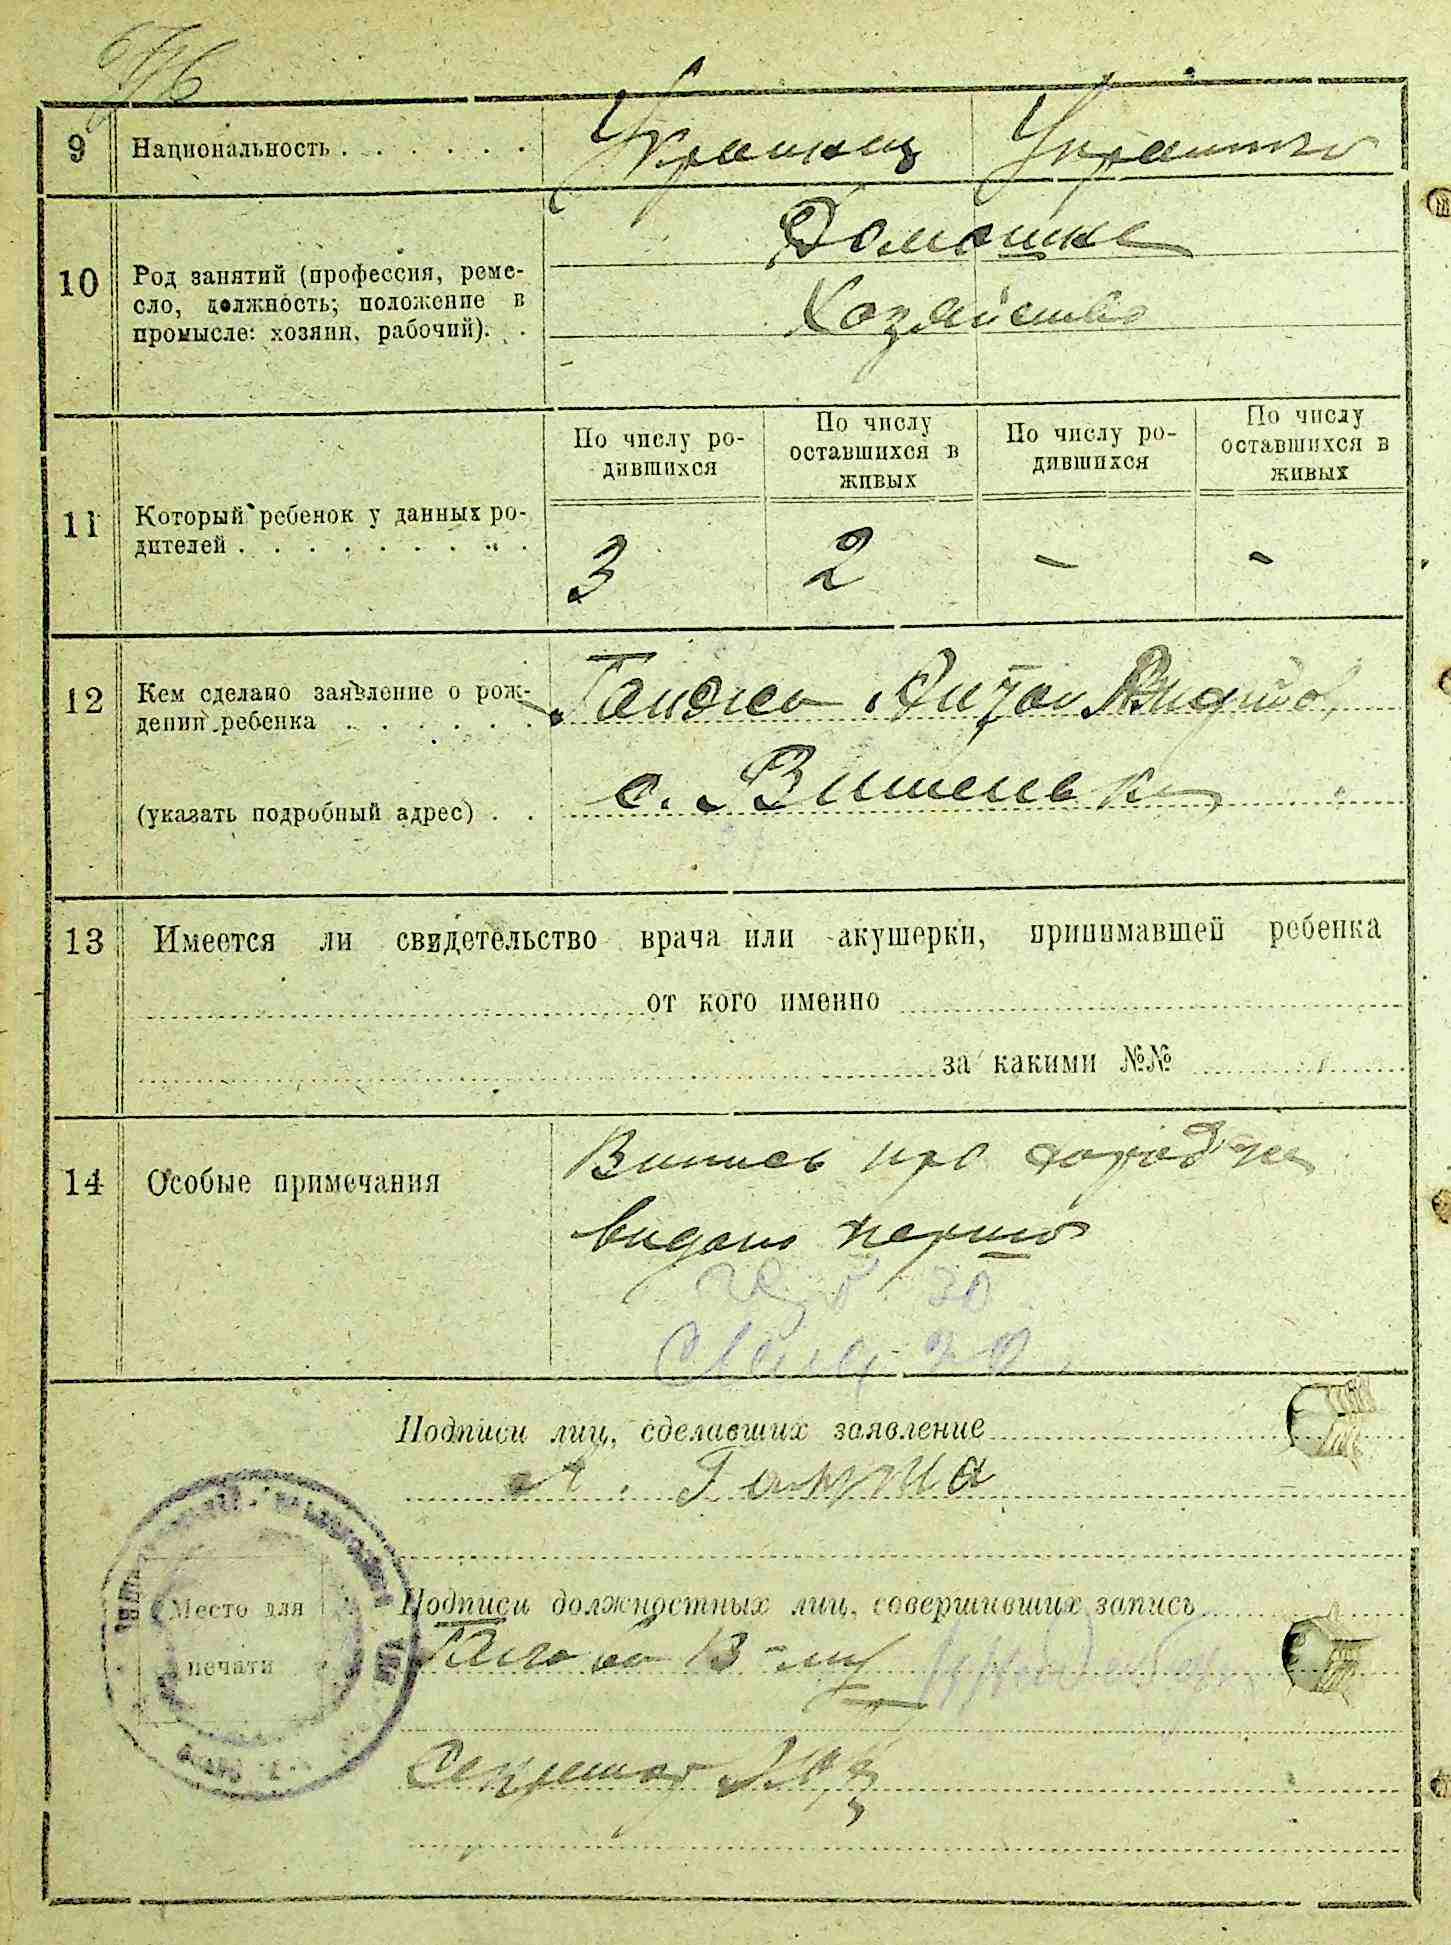 9 Национальность Украинец Украинка
10 Род занятий (профессия, реме-
сло, должность; положение в
промысле: хозяин, рабочий).
Домашнє
Хозяйство
11 Который ребенок у данных ро-
дителей
По числу ро-
дившихся
По числу
оставшихся в
живых
По числу ро-
дившихся
По числу
оставшихся в
живых
3 2 - -
12 Кем сделано заявление о рож-
дении ребенка
(указать подробный адрес)
Ганжа Антон
с. Вишеньки
13 Имеется ли свидетельство врача или акушерки, принимавшей ребенка
от кого именно
за какими №№
14 Особые примечания
Випись про
видано
30
Подписи лиц, сделавших заявление
А. Ганжа
Место для
печати
Подписи должностных лиц, совершивших запись
Голова В-
Секретар